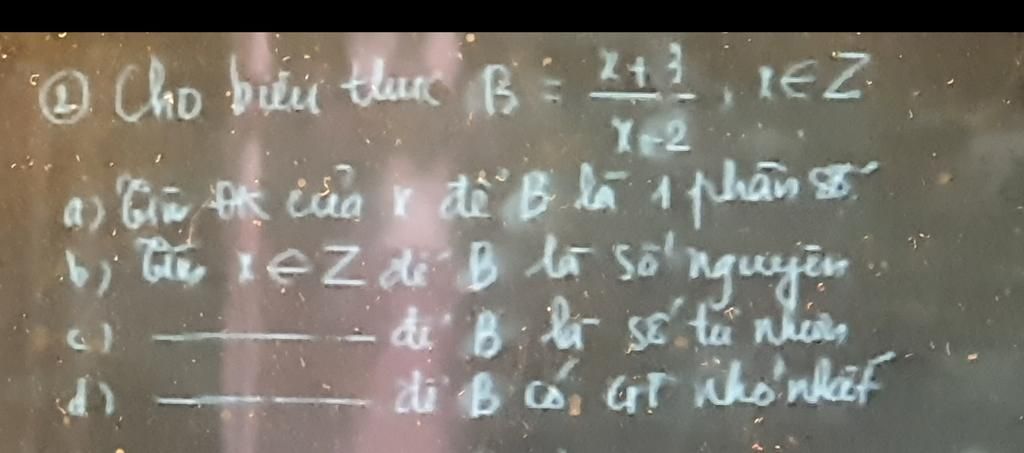 ② Cho biểu thức B = \frac{x+3}{x-2}, x ∈ Z
a) Tìm ĐK của x để B là 1 phân số
b) Tìm x ∈ Z để B là số nguyên
c) ______ để B là số tự nhiên
d) ______ để B có GT nhỏ nhất